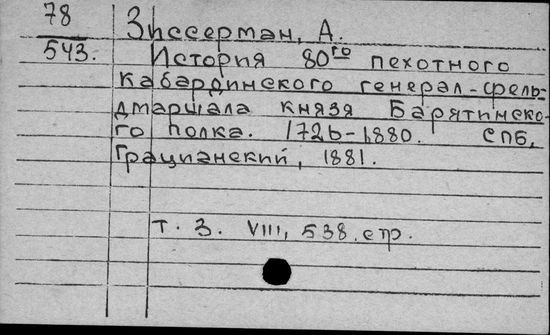 78
543.
Зиссерман, А.
История 80го пехотного
кабардинского генерал-фель-
дмаршала князя Барятинско-
го полка. 1726-1880. СПБ,
Грацианский, 1881.
Т. 3. VIII, 538 стр.